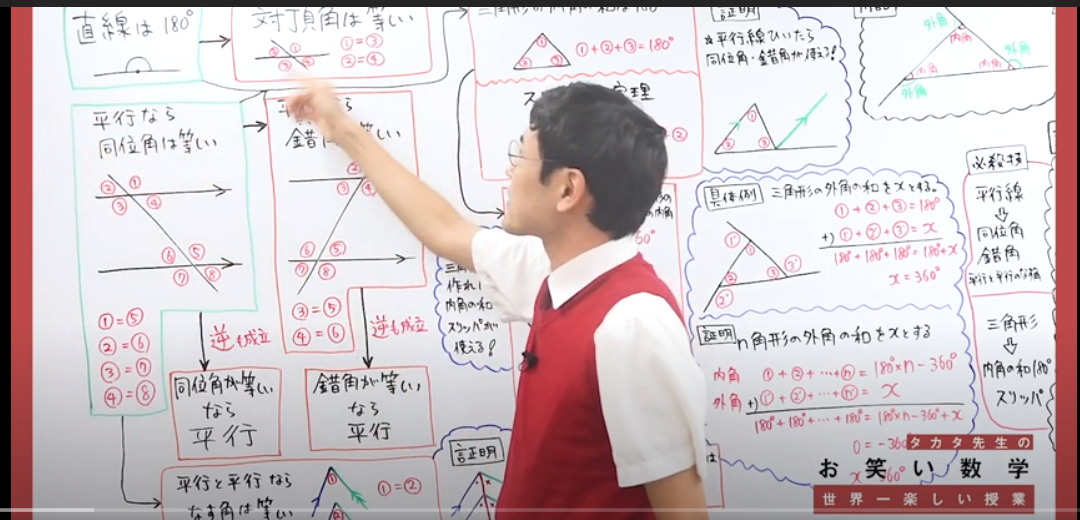 直線は180°
対頂角は等しい
① ② ③ ④
①=③
②=④
①
② ③
①+②+③=180°
証明
☆平行線ひいたら
同位角・錯角が使える!
①
② ③
外角
内角
外角
内角 内角
外角
平行なら
同位角は等しい
② ①
③ ④
⑥ ⑤
⑦ ⑧
①=⑤
②=⑥
③=⑦
④=⑧
なら
錯角は等しい
②
③ ④
⑥ ⑤
⑦ ⑧
③=⑤
④=⑥
定理
逆も成立
逆も成立
同位角が等しい
なら
平行
錯角が等しい
なら
平行
内角の和
スリッパが
使える!
具体例 三角形の外角の和をxとする。
①+②+③=180°
+) ①'+②'+③'= x
180°+180°+180°=180°+x
x=360°
①' ①
② ③ ③'
②'
証明 n角形の外角の和をxとする
内角 ①+②+…+ⓝ=180°×n-360°
外角 +) ①'+②'+…+ⓝ'= x
180°+180°+…+180°=180°×n-360°+x
必殺技
平行線
⇩
同位角
錯角
三角形
⇩
内角の和180°
スリッパ
平行と平行なら
なす角は等しい
①
②
①=②
証明
タカタ先生の
お笑い数学
世界一楽しい授業